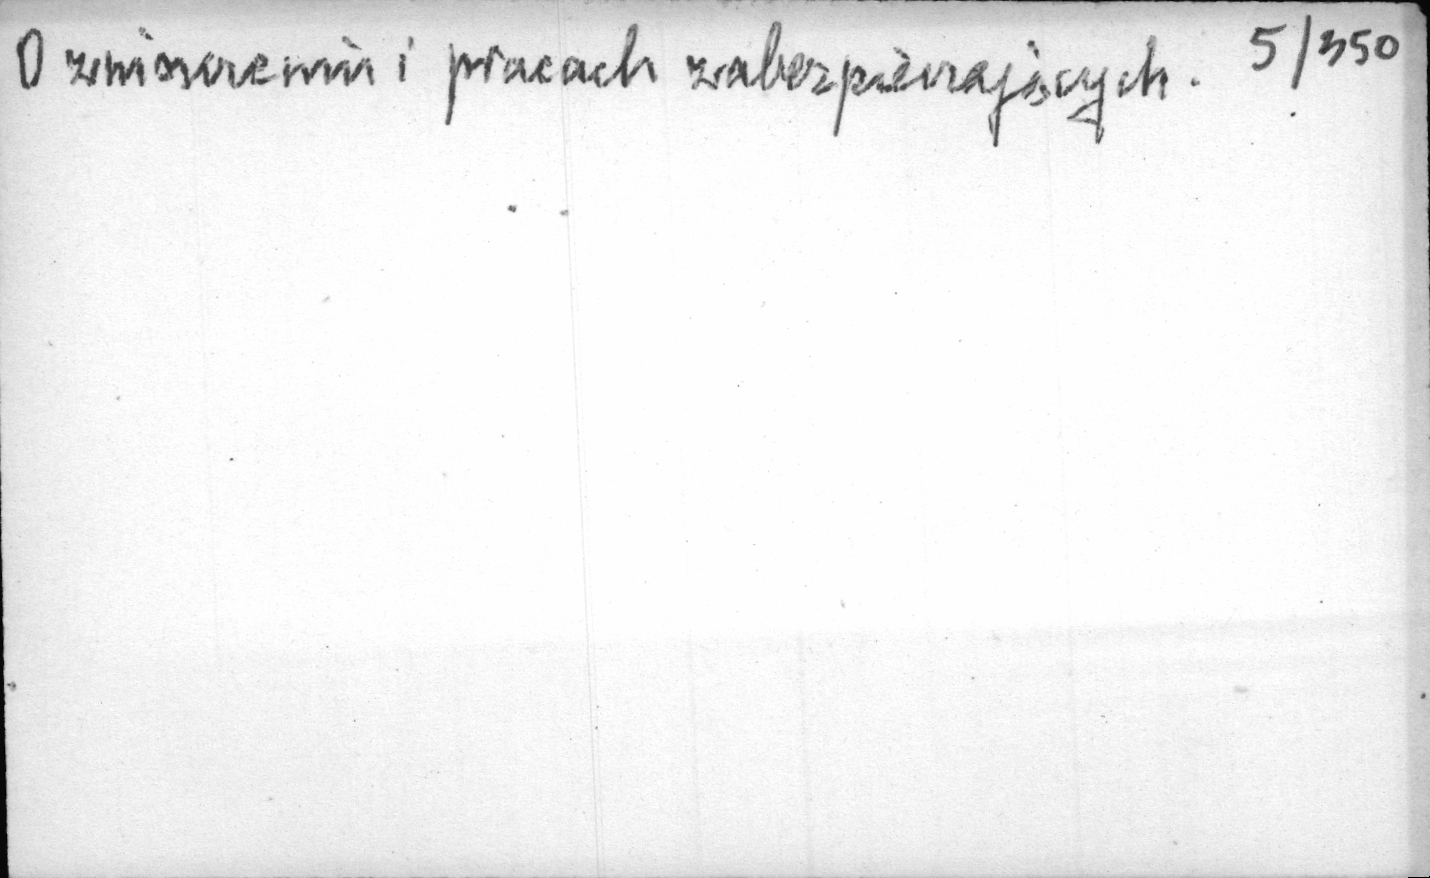 O zniszczeniu i pracach zabezpieczających. 5/350